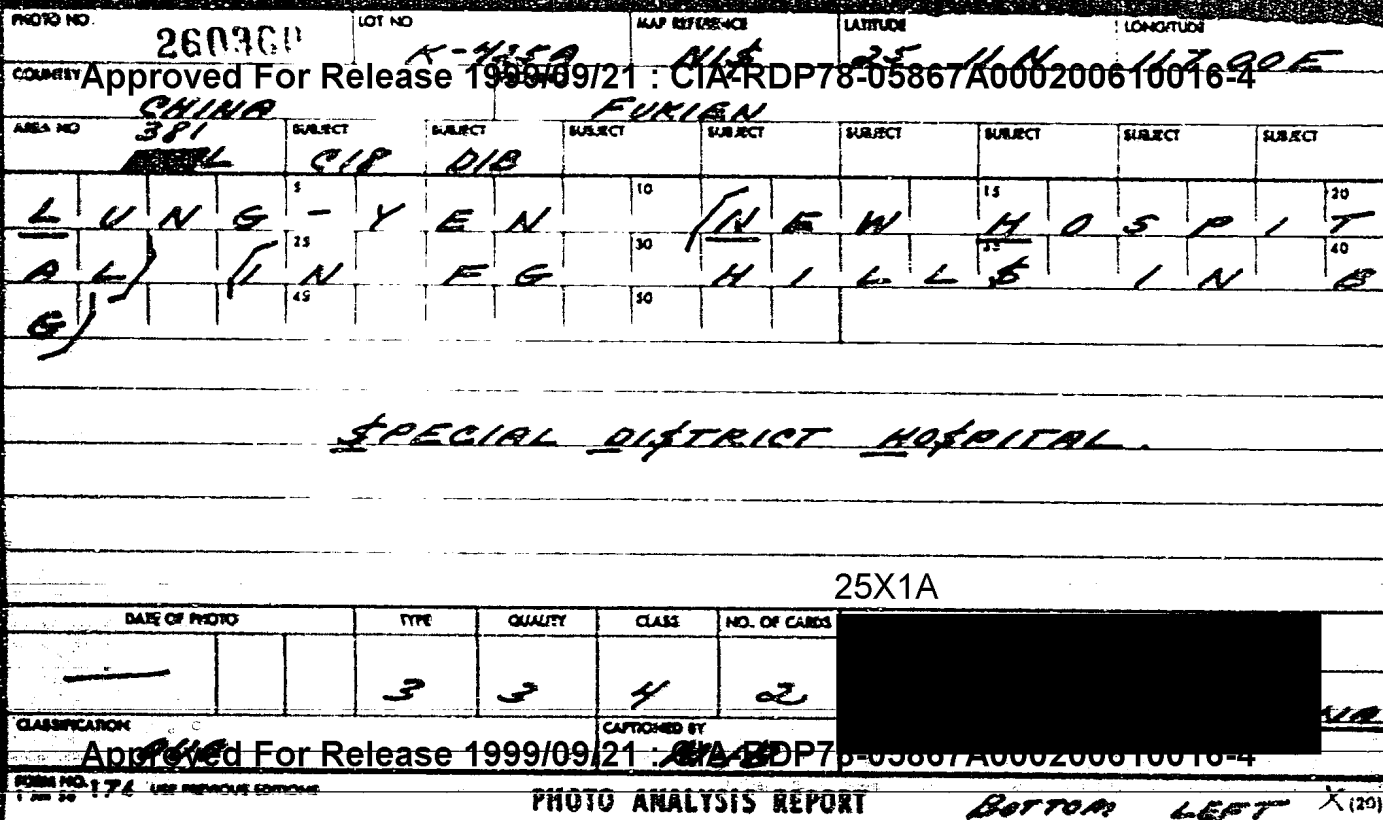 PHOTO NO. LOT NO MAP REFERENCE LATITUDE LONGITUDE
K-435A NIS 25 11 N 117 00 E
COUNTRY Approved For Release 1999/09/21 : CIA-RDP78-05867A000200610016-4
CHINA FUKIEN
AREA NO 381 SUBJECT SUBJECT SUBJECT SUBJECT SUBJECT SUBJECT SUBJECT SUBJECT
C18 D1B
5 10 15 20
LUNG-YEN (NEW HOSPIT
25 30 35 40
AL) (IN FG HILLS IN B
45 50
G)
SPECIAL DISTRICT HOSPITAL.
25X1A
DATE OF PHOTO TYPE QUALITY CLASS NO. OF CARDS
— 3 3 4 2
CLASSIFICATION CAPTIONED BY
Approved For Release 1999/09/21 : CIA-RDP78-05867A000200610016-4
FORM NO. 174 USE PREVIOUS EDITIONS
PHOTO ANALYSIS REPORT BOTTOM LEFT X (20)